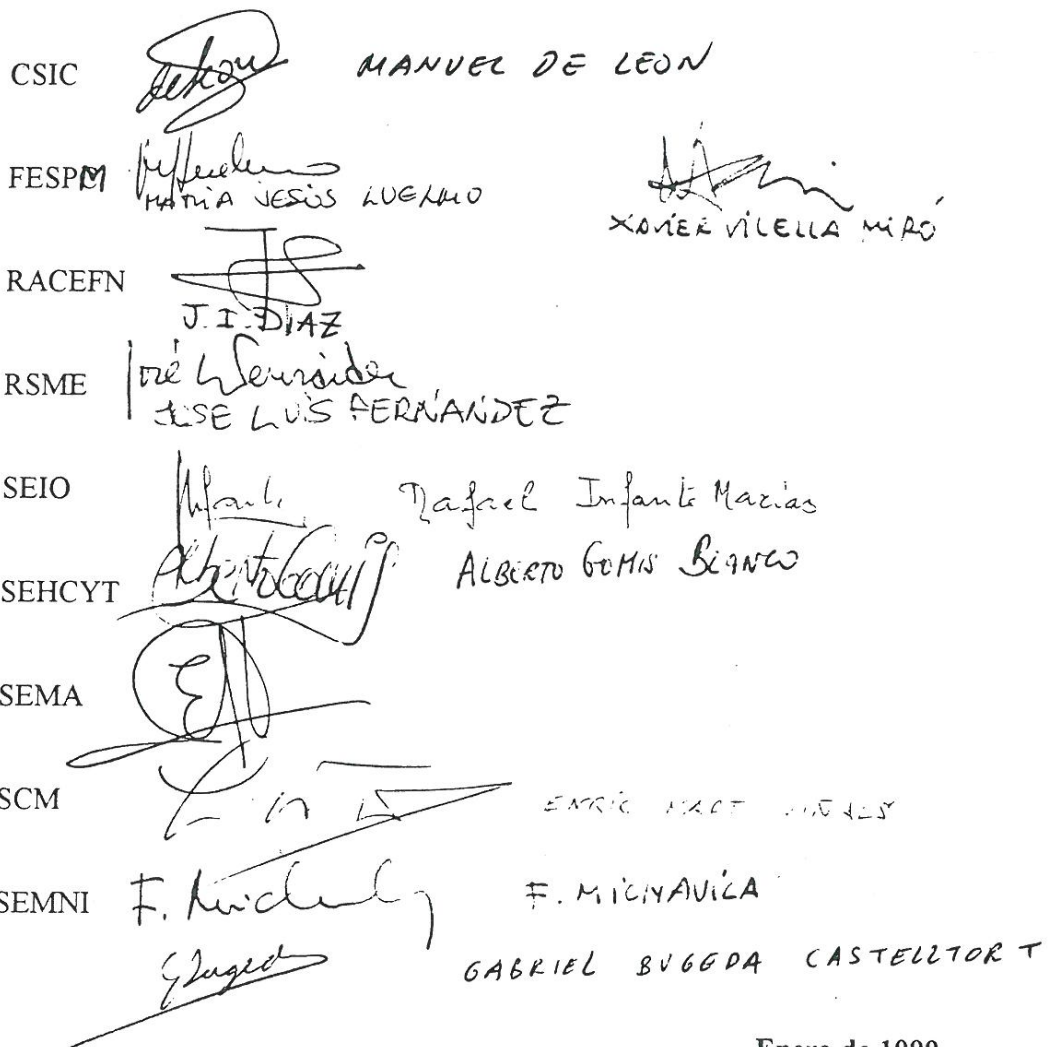 CSIC MANUEL DE LEON
FESPM
MARIA JESÚS LUELMO
XAVIER VILELLA MIRÓ
RACEFN
J. I. DIAZ
RSME
JOSE LUIS FERNÁNDEZ
SEIO Rafael Infante Macías
SEHCYT Alberto Gomis ALBERTO GOMIS BLANCO
SEMA
SCM ENRIC
SEMNI F. MICHAVILA
GABRIEL BUGEDA CASTELLTORT
Enero de 1999